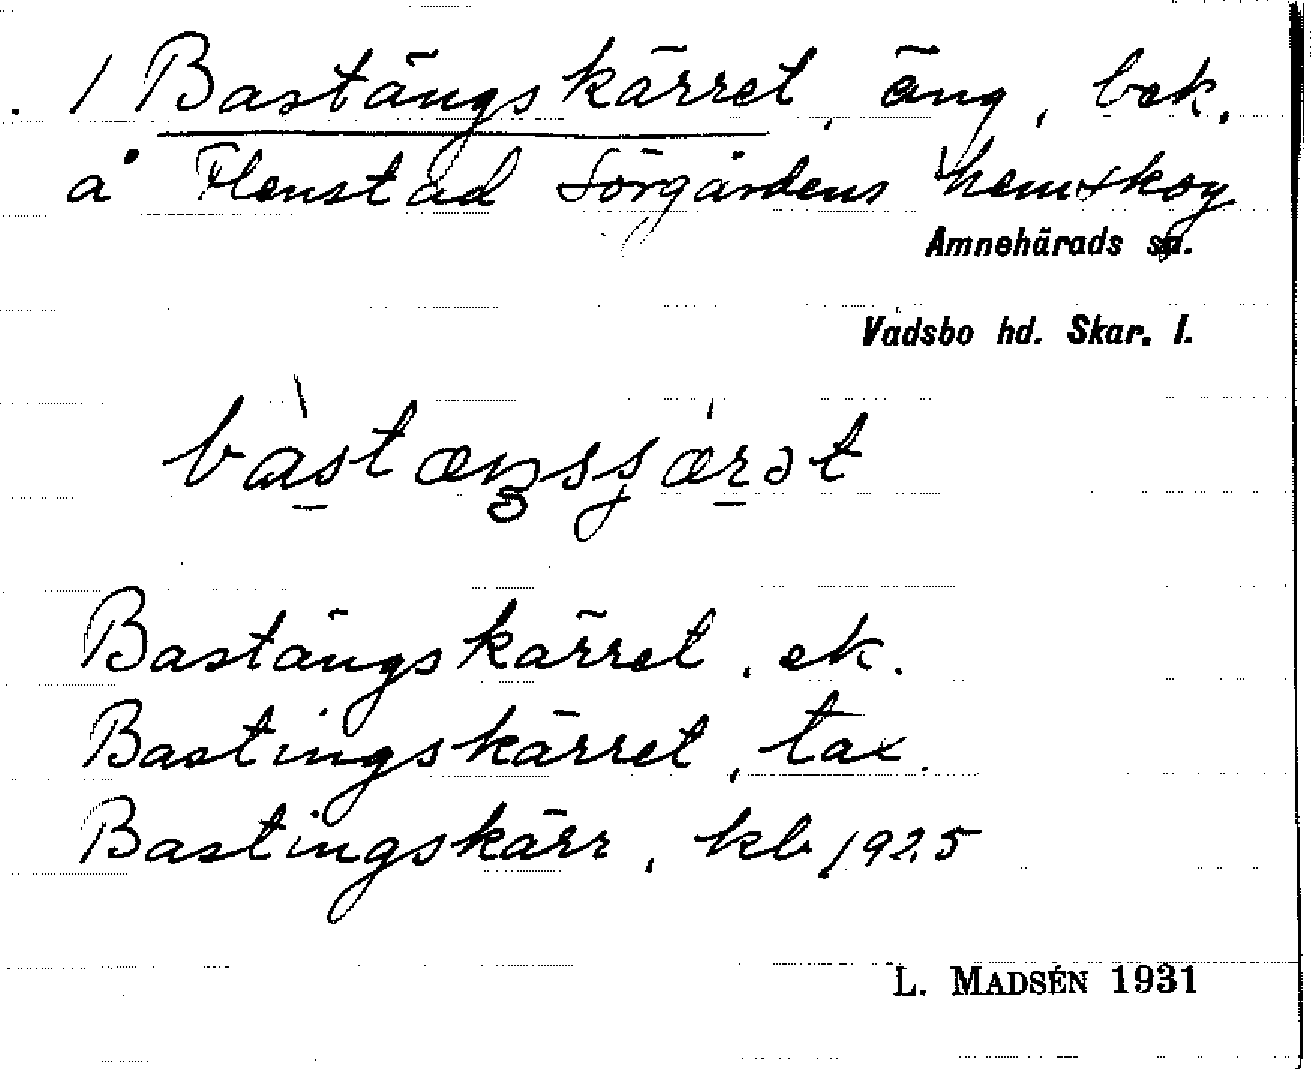 1 Bastängskärret, äng, bek.
å Flenstad Sörgårdens hemskog
Amnehärads sn.
Vadsbo hd. Skar. l.
Bastängskärret, ek.
Bastingskärret, tax.
Bastingskärr, kb 1925
L. MADSÉN 1931